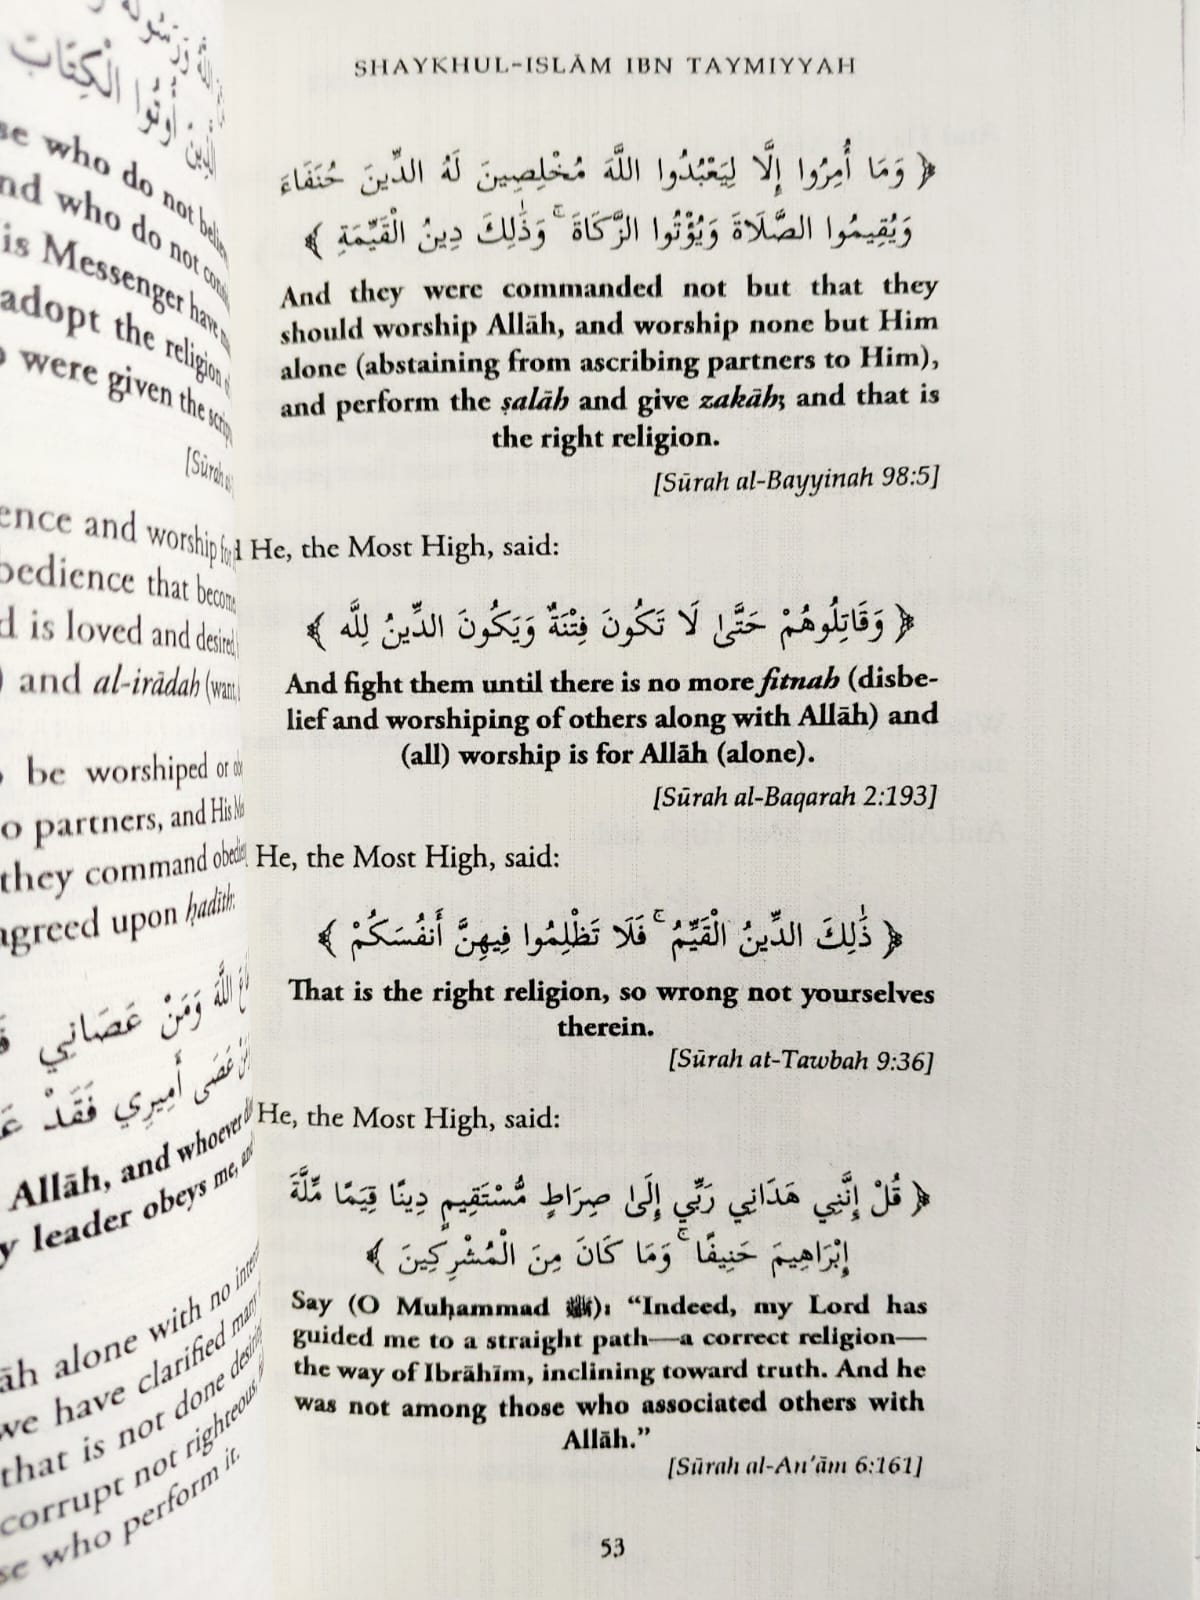 الله ورسوله
الذين أوتوا الكتاب
se who do not
nd who do not
is Messenger have
adopt the religion
were given the
[Sūrah
ence and worship
bedience that become
d is loved and desired,
) and al-irādah (want,
be worshiped or
o partners, and His
they command
agreed upon ḥadīth:
اللَّهَ وَمَنْ عَصَانِي
عَصَى أَمِيرِي فَقَدْ
Allāh, and whoever
y leader obeys me,
āh alone with no
we have clarified many
that is not done
corrupt not righteous,
se who perform it.
SHAYKHUL-ISLĀM IBN TAYMIYYAH
﴿ وَمَا أُمِرُوا إِلَّا لِيَعْبُدُوا اللَّهَ مُخْلِصِينَ لَهُ الدِّينَ حُنَفَاءَ
وَيُقِيمُوا الصَّلَاةَ وَيُؤْتُوا الزَّكَاةَ ۚ وَذَٰلِكَ دِينُ الْقَيِّمَةِ ﴾
And they were commanded not but that they
should worship Allāh, and worship none but Him
alone (abstaining from ascribing partners to Him),
and perform the ṣalāh and give zakāh; and that is
the right religion.
[Sūrah al-Bayyinah 98:5]
He, the Most High, said:
﴿ وَقَاتِلُوهُمْ حَتَّىٰ لَا تَكُونَ فِتْنَةٌ وَيَكُونَ الدِّينُ لِلَّهِ ﴾
And fight them until there is no more fitnah (disbe-
lief and worshiping of others along with Allāh) and
(all) worship is for Allāh (alone).
[Sūrah al-Baqarah 2:193]
He, the Most High, said:
﴿ ذَٰلِكَ الدِّينُ الْقَيِّمُ ۚ فَلَا تَظْلِمُوا فِيهِنَّ أَنفُسَكُمْ ﴾
That is the right religion, so wrong not yourselves
therein.
[Sūrah at-Tawbah 9:36]
He, the Most High, said:
﴿ قُلْ إِنَّنِي هَدَانِي رَبِّي إِلَىٰ صِرَاطٍ مُّسْتَقِيمٍ دِينًا قِيَمًا مِّلَّةَ
إِبْرَاهِيمَ حَنِيفًا ۚ وَمَا كَانَ مِنَ الْمُشْرِكِينَ ﴾
Say (O Muḥammad ﷺ): “Indeed, my Lord has
guided me to a straight path—a correct religion—
the way of Ibrāhīm, inclining toward truth. And he
was not among those who associated others with
Allāh.”
[Sūrah al-An’ām 6:161]
53